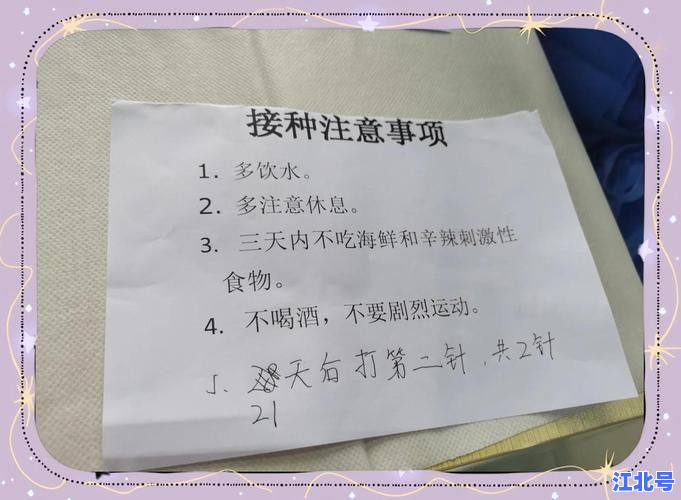 接种注意事项
1. 多饮水。
2. 多注意休息。
3. 三天内不吃海鲜和辛辣刺激性
食物。
4. 不喝酒，不要剧烈运动。
5、天后打第二针，共2针
21
江北号